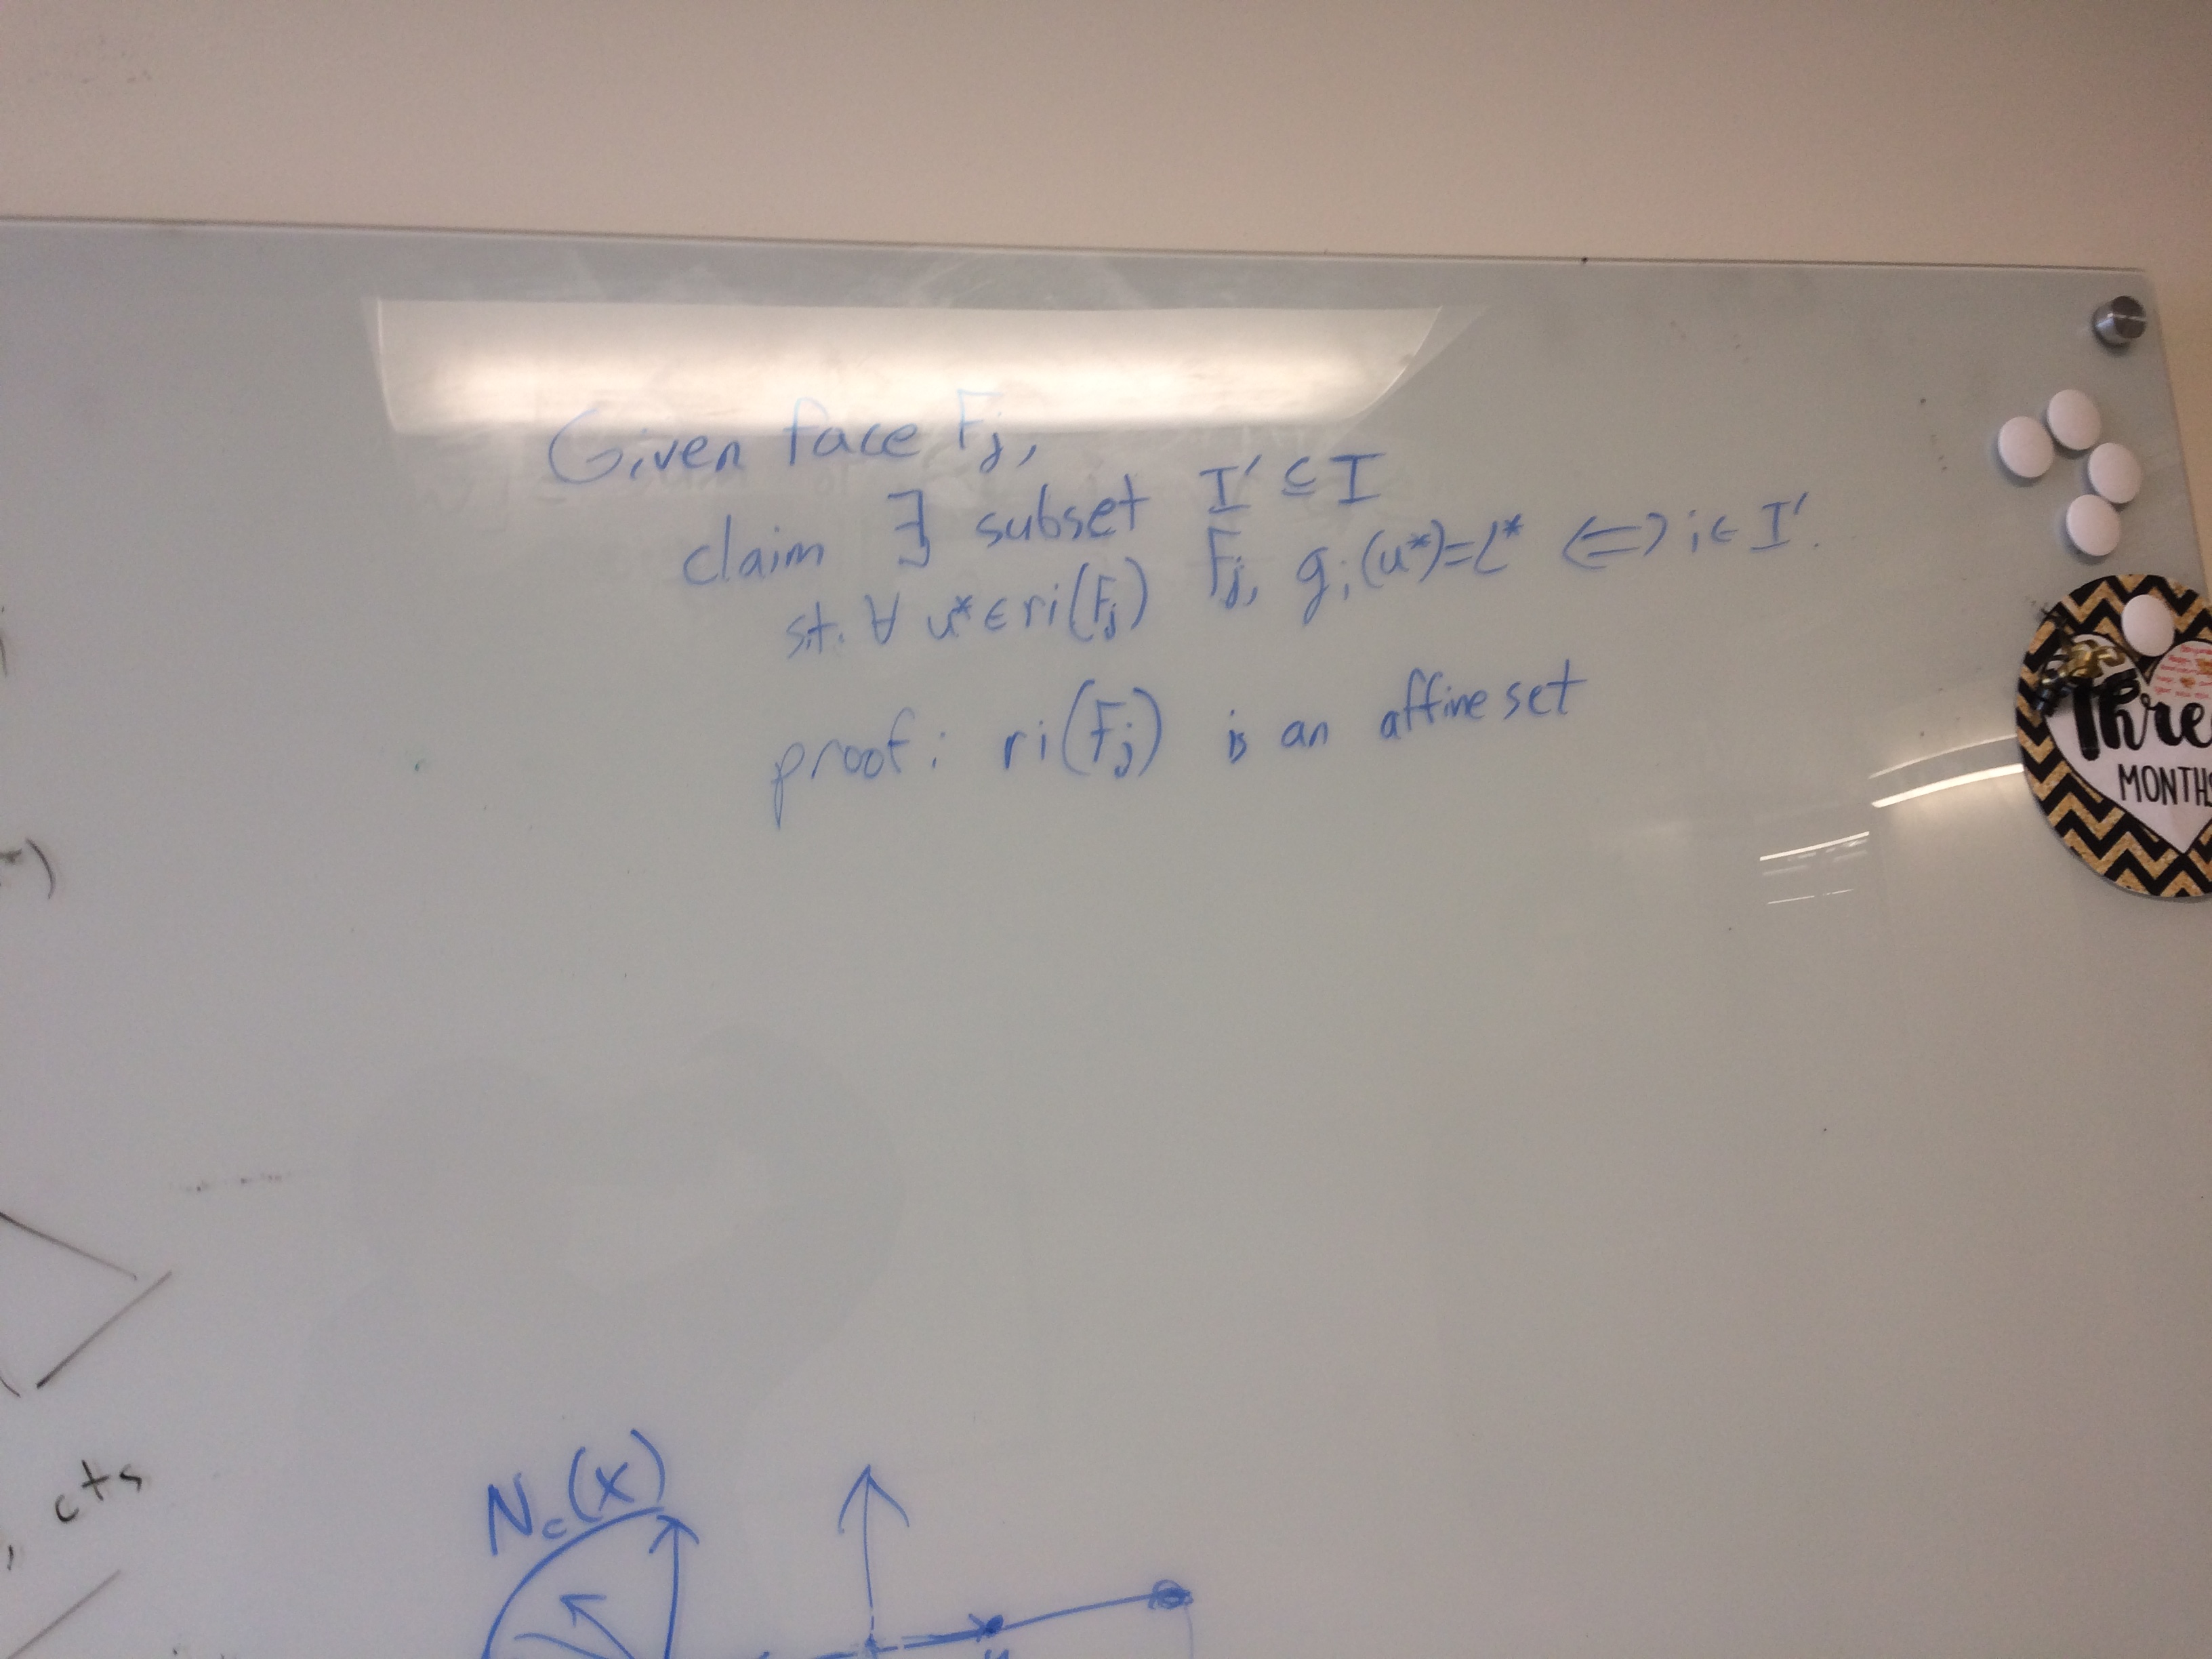 Given face F_j,
claim ∃ subset I' ⊆ I
s.t. ∀ u* ∈ ri(F_j) F_j, g_i(u*)=L* ⟺ i ∈ I'.
proof: ri(F_j) is an affine set
Thre
MONTHS
*)
, cts
N_c(x)